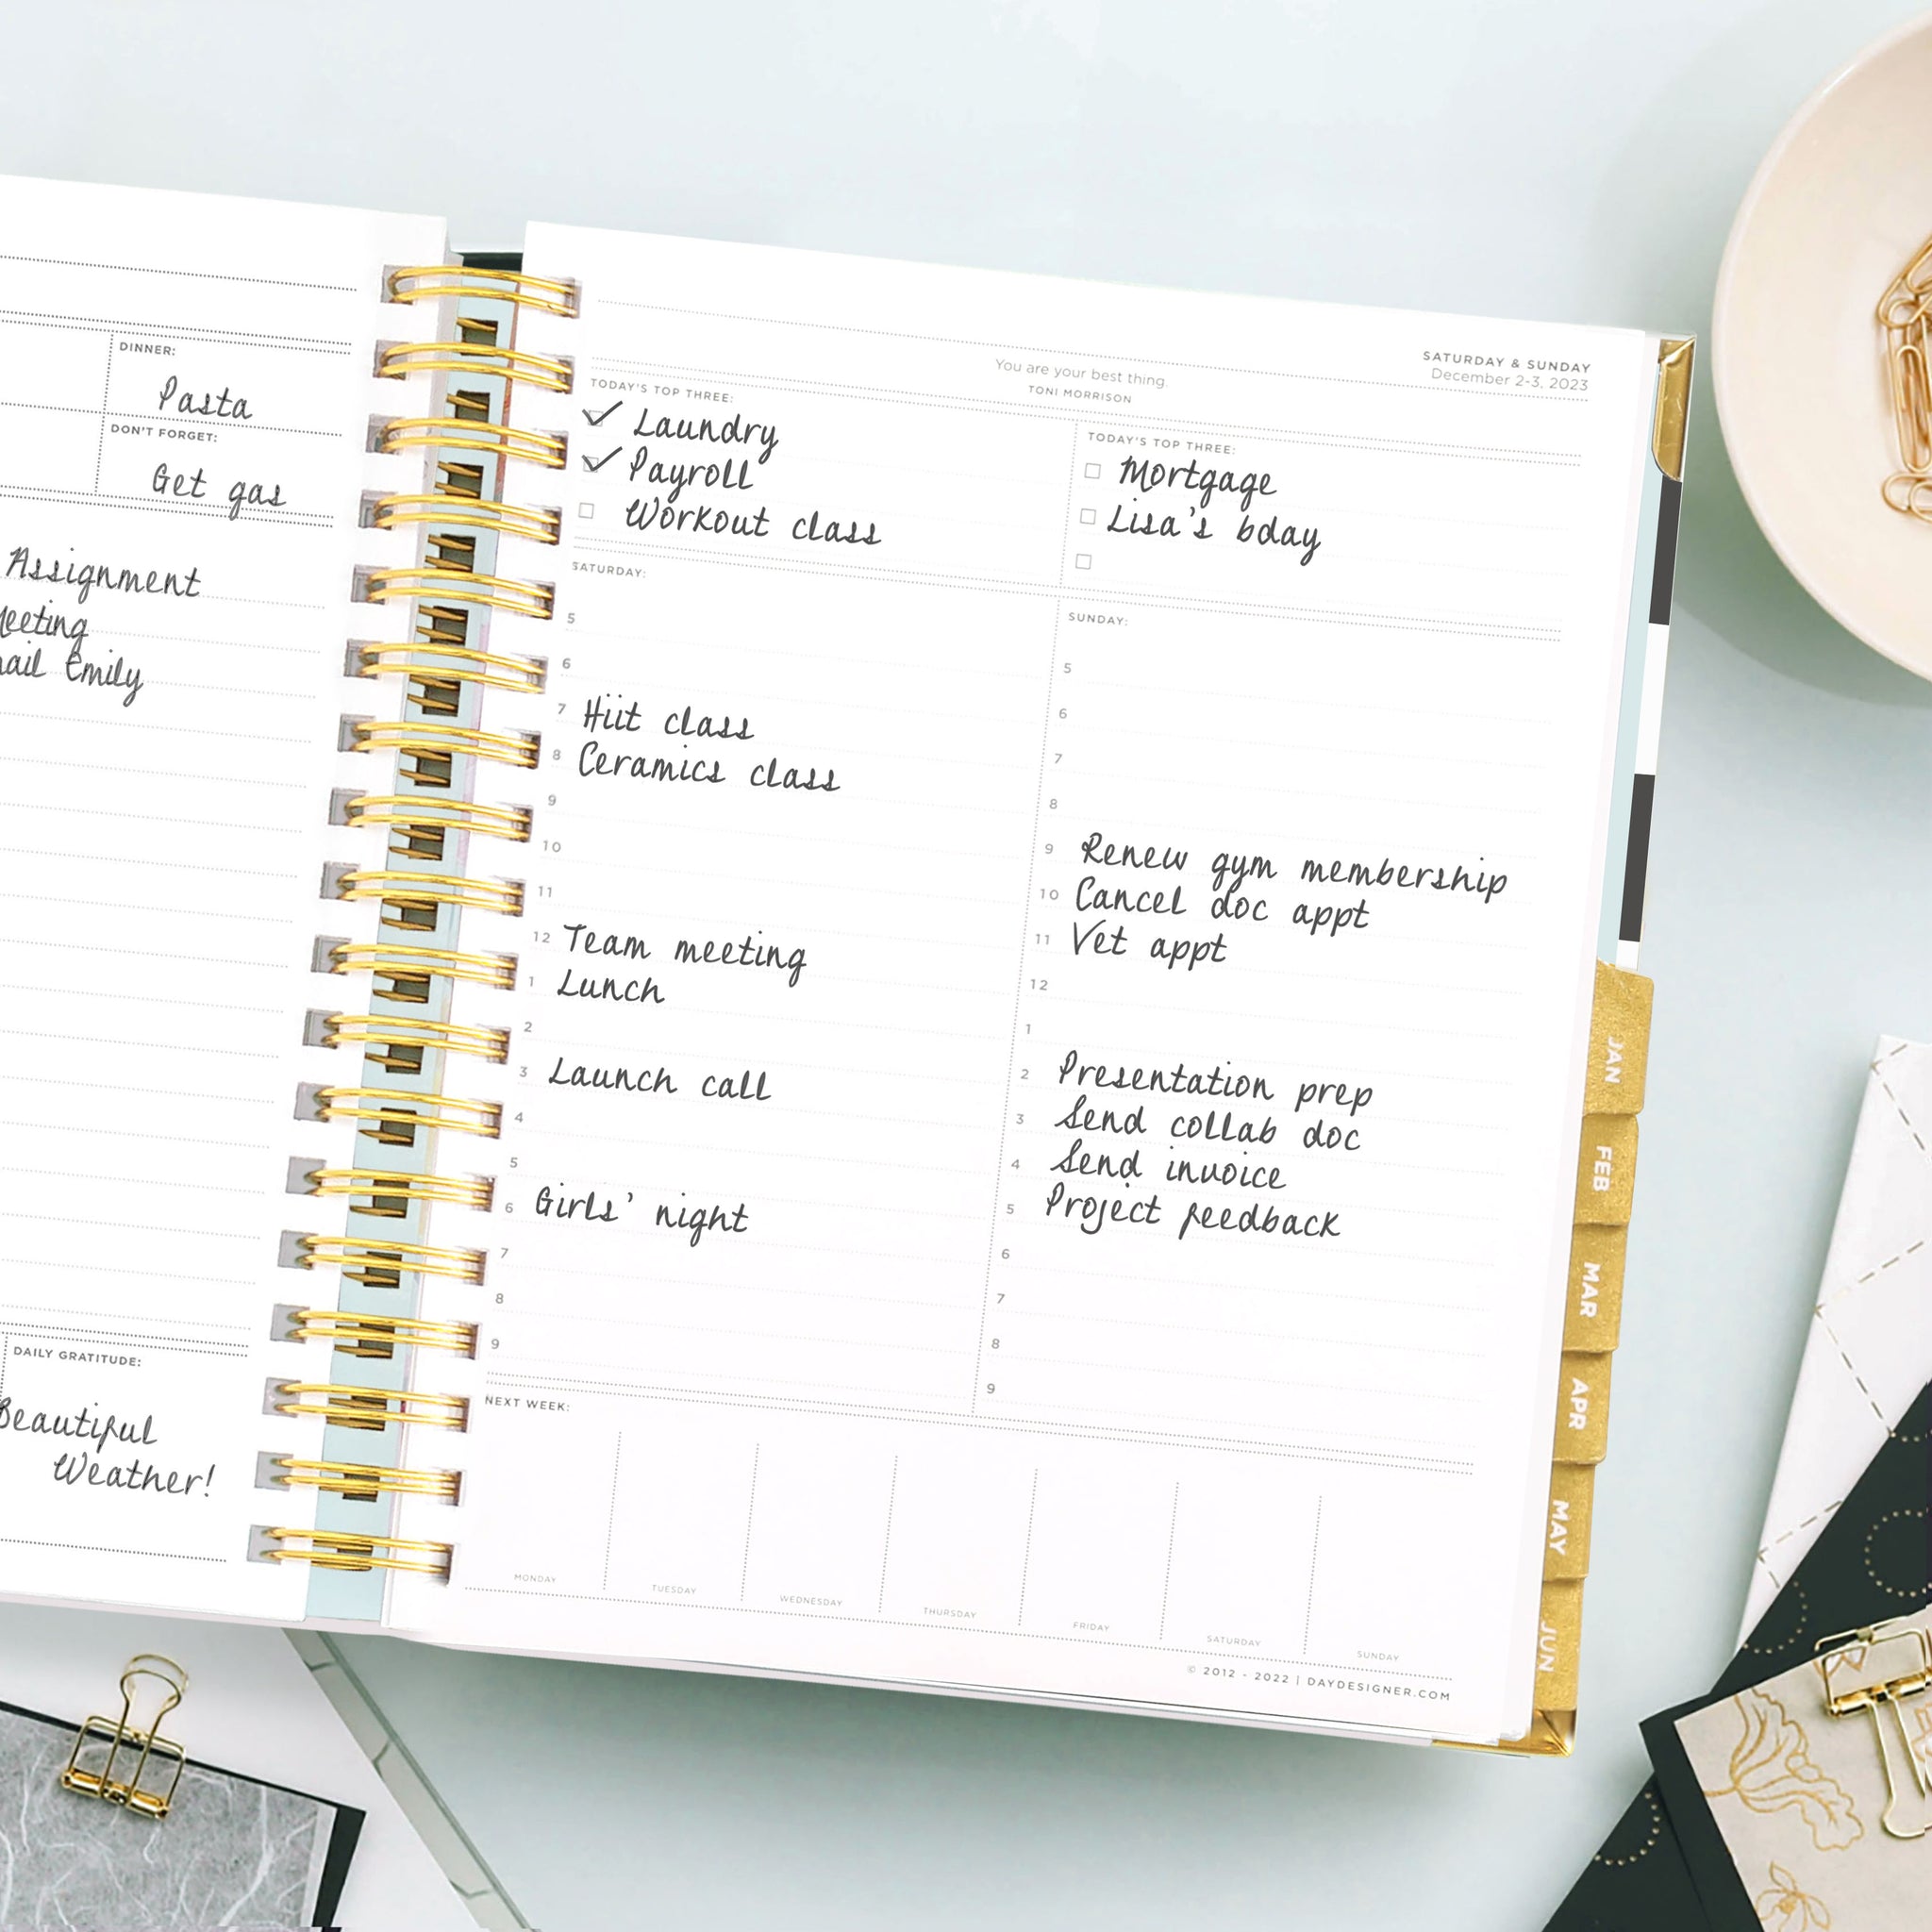 DINNER:
Pasta
DON'T FORGET:
Get gas
Assignment
Emily
DAILY GRATITUDE:
Beautiful
Weather!
You are your best thing.
TONI MORRISON
SATURDAY & SUNDAY
December 2-3, 2023
TODAY'S TOP THREE:
Laundry
Payroll
Workout class
TODAY'S TOP THREE:
Mortgage
Lisa's bday
SATURDAY:
5
6
7 Hiit class
8 Ceramics class
9
10
11
12 Team meeting
1 Lunch
2
3 Launch call
4
5
6 Girls' night
7
8
9
SUNDAY:
5
6
7
8
9 Renew gym membership
10 Cancel doc appt
11 Vet appt
12
1
2 Presentation prep
3 Send collab doc
4 Send invoice
5 Project feedback
6
7
8
9
NEXT WEEK:
MONDAY
TUESDAY
WEDNESDAY
THURSDAY
FRIDAY
SATURDAY
SUNDAY
© 2012 - 2022 | DAYDESIGNER.COM
JAN
FEB
MAR
APR
MAY
JUN